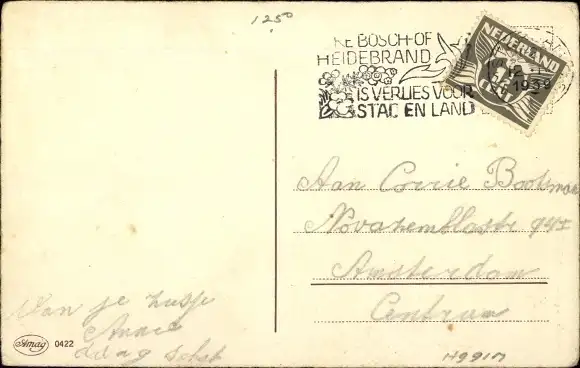 125⁰
KE BOSCH-OF
HEIDEBRAND
IS VERLIES VOOR
STAD EN LAND
NEDERLAND
Aan Corrie Bootsman
Novazemblastr
Amsterdam
Centrum
Van je zusje
Annie
dag
Amag 0422